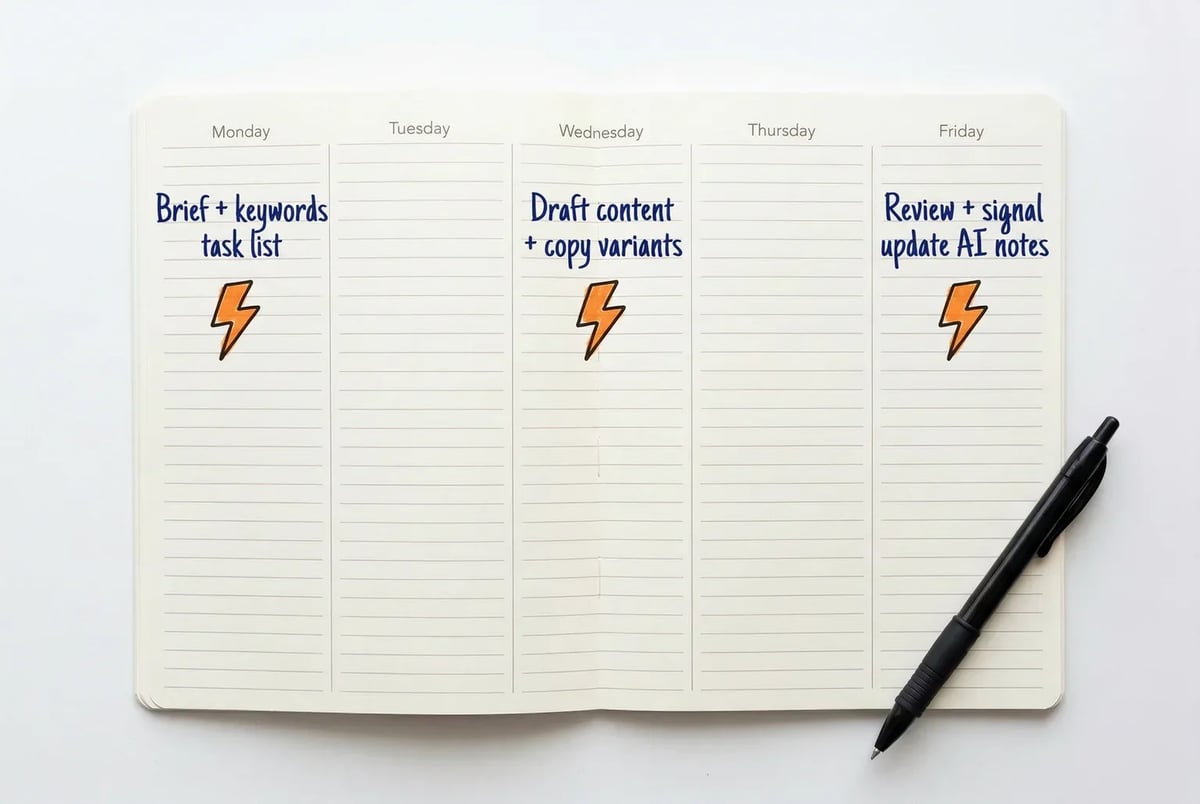 Monday
Tuesday
Wednesday
Thursday
Friday
Brief + keywords
task list
Draft content
+ copy variants
Review + signal
update AI notes